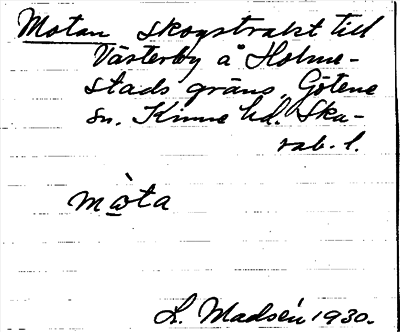 Motan skogstrakt till
Västerby å Holme-
stads gräns, Götene
sn. Kinne hd. Ska-
rab. l.
mò̲ta
L. Madsén 1930.